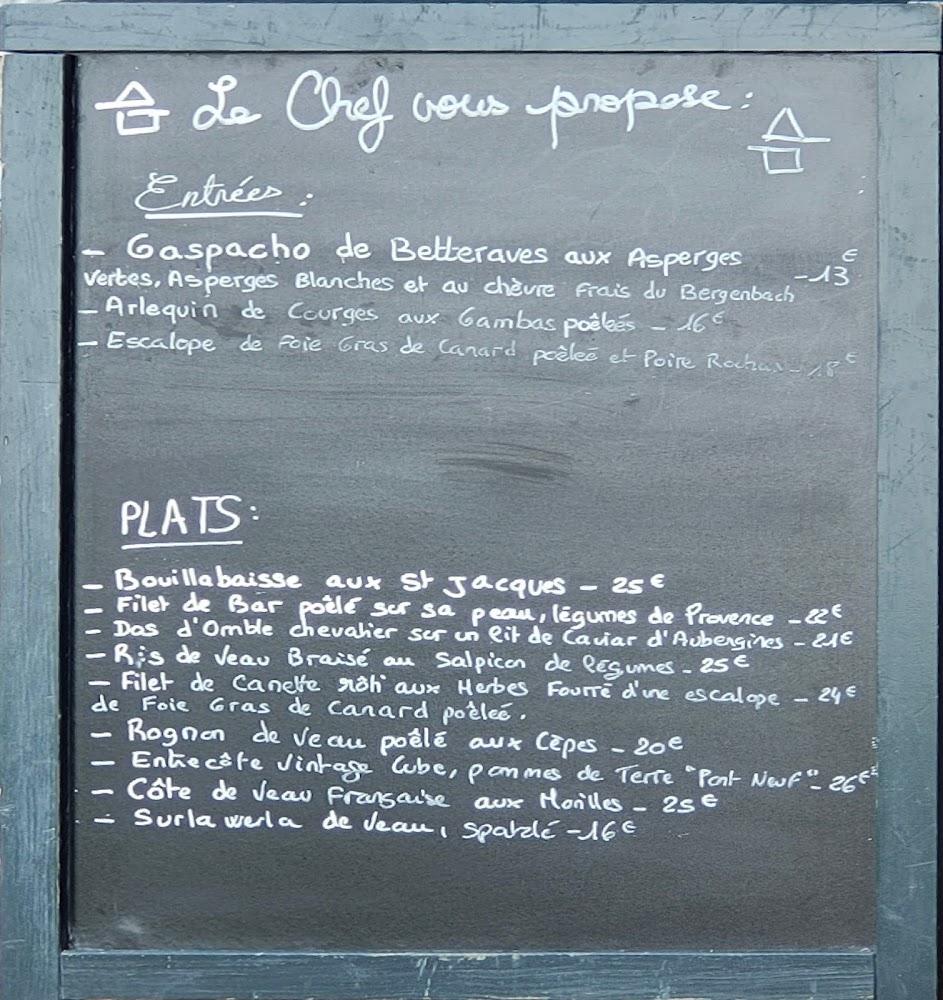 Le Chef vous propose :
Entrées :
- Gaspacho de Betteraves aux Asperges
vertes, Asperges Blanches et au chèvre Frais du Bergenbach -13€
- Arlequin de Courges aux Gambas poêlés - 16€
- Escalope de Foie Gras de Canard poêleé et Poire Rochas - 18€
PLATS :
- Bouillabaisse aux St Jacques - 25€
- Filet de Bar poêlé sur sa peau, légumes de Provence - 22€
- Dos d'Omble chevalier sur un lit de Caviar d'Aubergines - 21€
- Ris de Veau Braisé au Salpicon de légumes - 25€
- Filet de Canette rôti aux Herbes Fourré d'une escalope - 24€
de Foie Gras de Canard poêleé.
- Rognon de veau poêlé aux Cèpes - 20€
- Entrecôte Vintage Cube, pommes de Terre "Pont Neuf" - 26€
- Côte de Veau Française aux Morilles - 25€
- Surlawerla de Veau, spatzlé - 16€